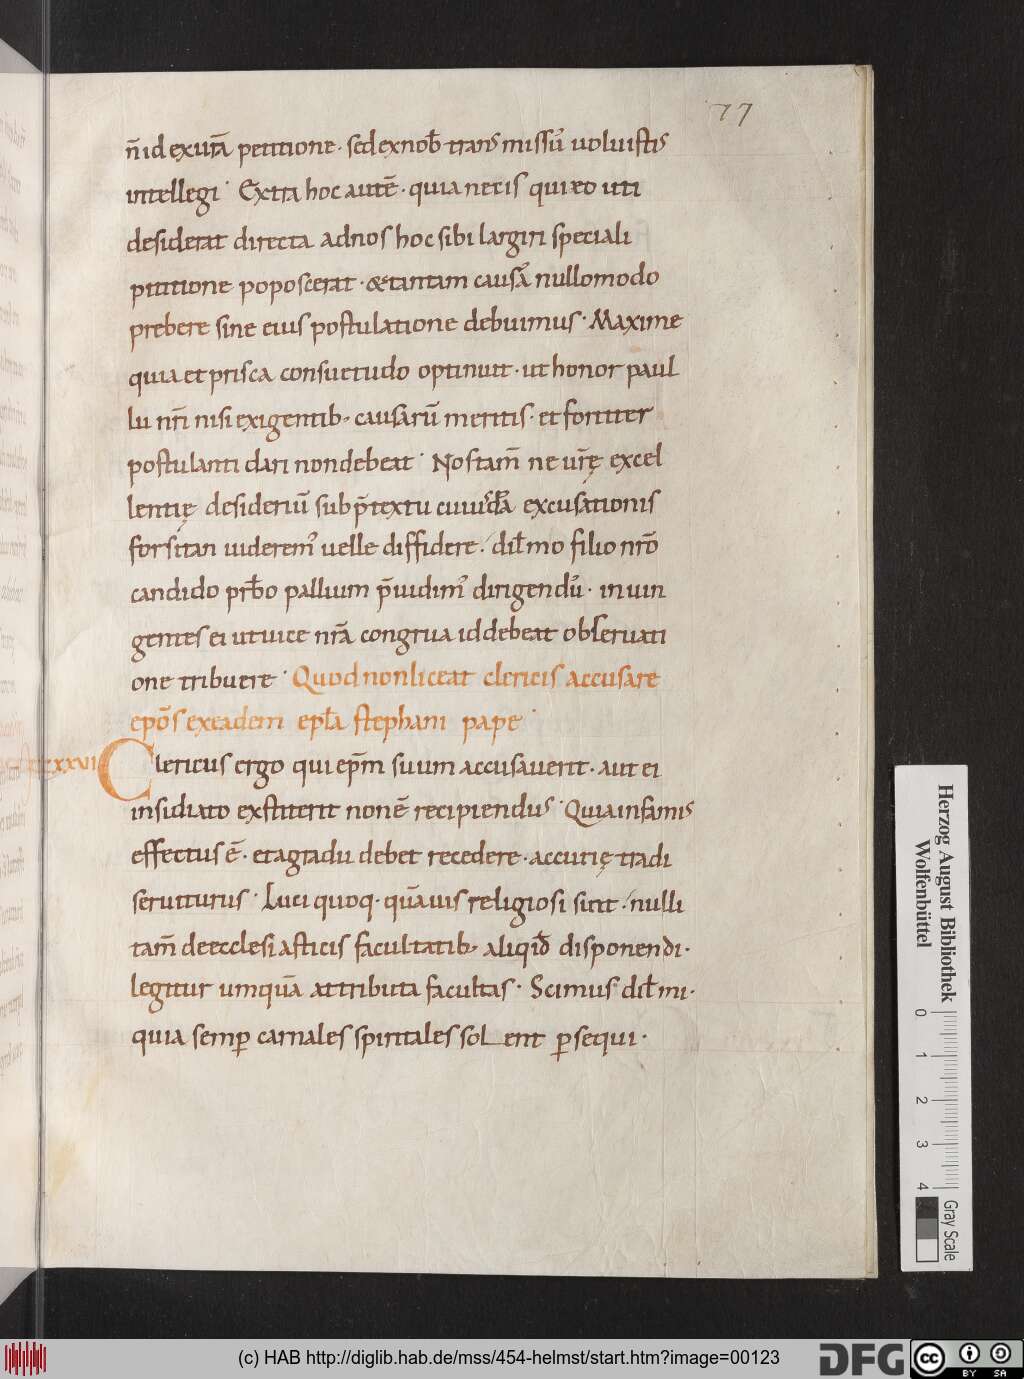 77
n̄ id ex ur̄a petitione · sed ex nob̄ transmissū uoluistis
intellegi · Extra hoc autē · quia nec is qui eo uti
desiderat directa ad nos hoc sibi largiri speciali
petitione poposcerat · & tantam causā nullomodo
prebere sine eius postulatione debuimus · Maxime
quia et prisca consuetudo optinuit · ut honor paul
lii nr̄i nisi exigentib; causarū meritis · et fortiter
postulanti dari non debeat · Nos tam̄ ne ur̄ę excel
lentię desideriū sub p̄textu cuiusdā excusationis
forsitan uideremꝰ uelle diffidere · dil̄mo filio nr̄o
candido prb̄o pallium p̄uidimꝰ dirigendū · in uin
gentes ei ut uice nr̄a congrua id debeat obseruati
one tribuere · Quod non liceat clericis accusare
epōs ex eadem epl̄a stephani pape ·
XXVI Clericus ergo qui ep̄m suum accusauerit · aut ei
insidiato exstiterit non ē recipiendus · Quia infamis
effectus ē · et a gradu debet recedere · ac curię tradi
seruiturus · Luci quoq · quāuis religiosi sint · nulli
tam̄ de ecclesiasticis facultatib; aliqid̄ disponendi ·
legitur umquā attributa facultas · Scimus dil̄mi ·
quia semꝑ carnales spiritales solent ꝑsequi ·
Herzog August Bibliothek
Wolfenbüttel
0 1 2 3 4
Gray Scale
(c) HAB http://diglib.hab.de/mss/454-helmst/start.htm?image=00123
DFG
cc BY SA